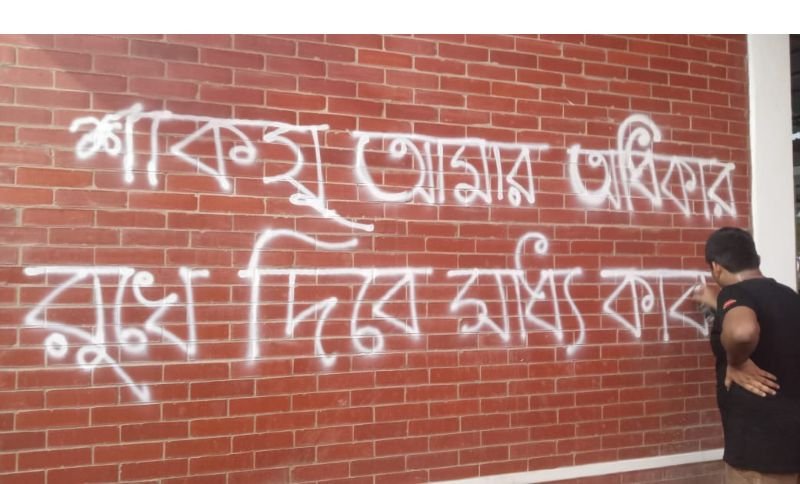 শাকসু আমার অধিকার
রুখে দিবে সাধ্যি কার